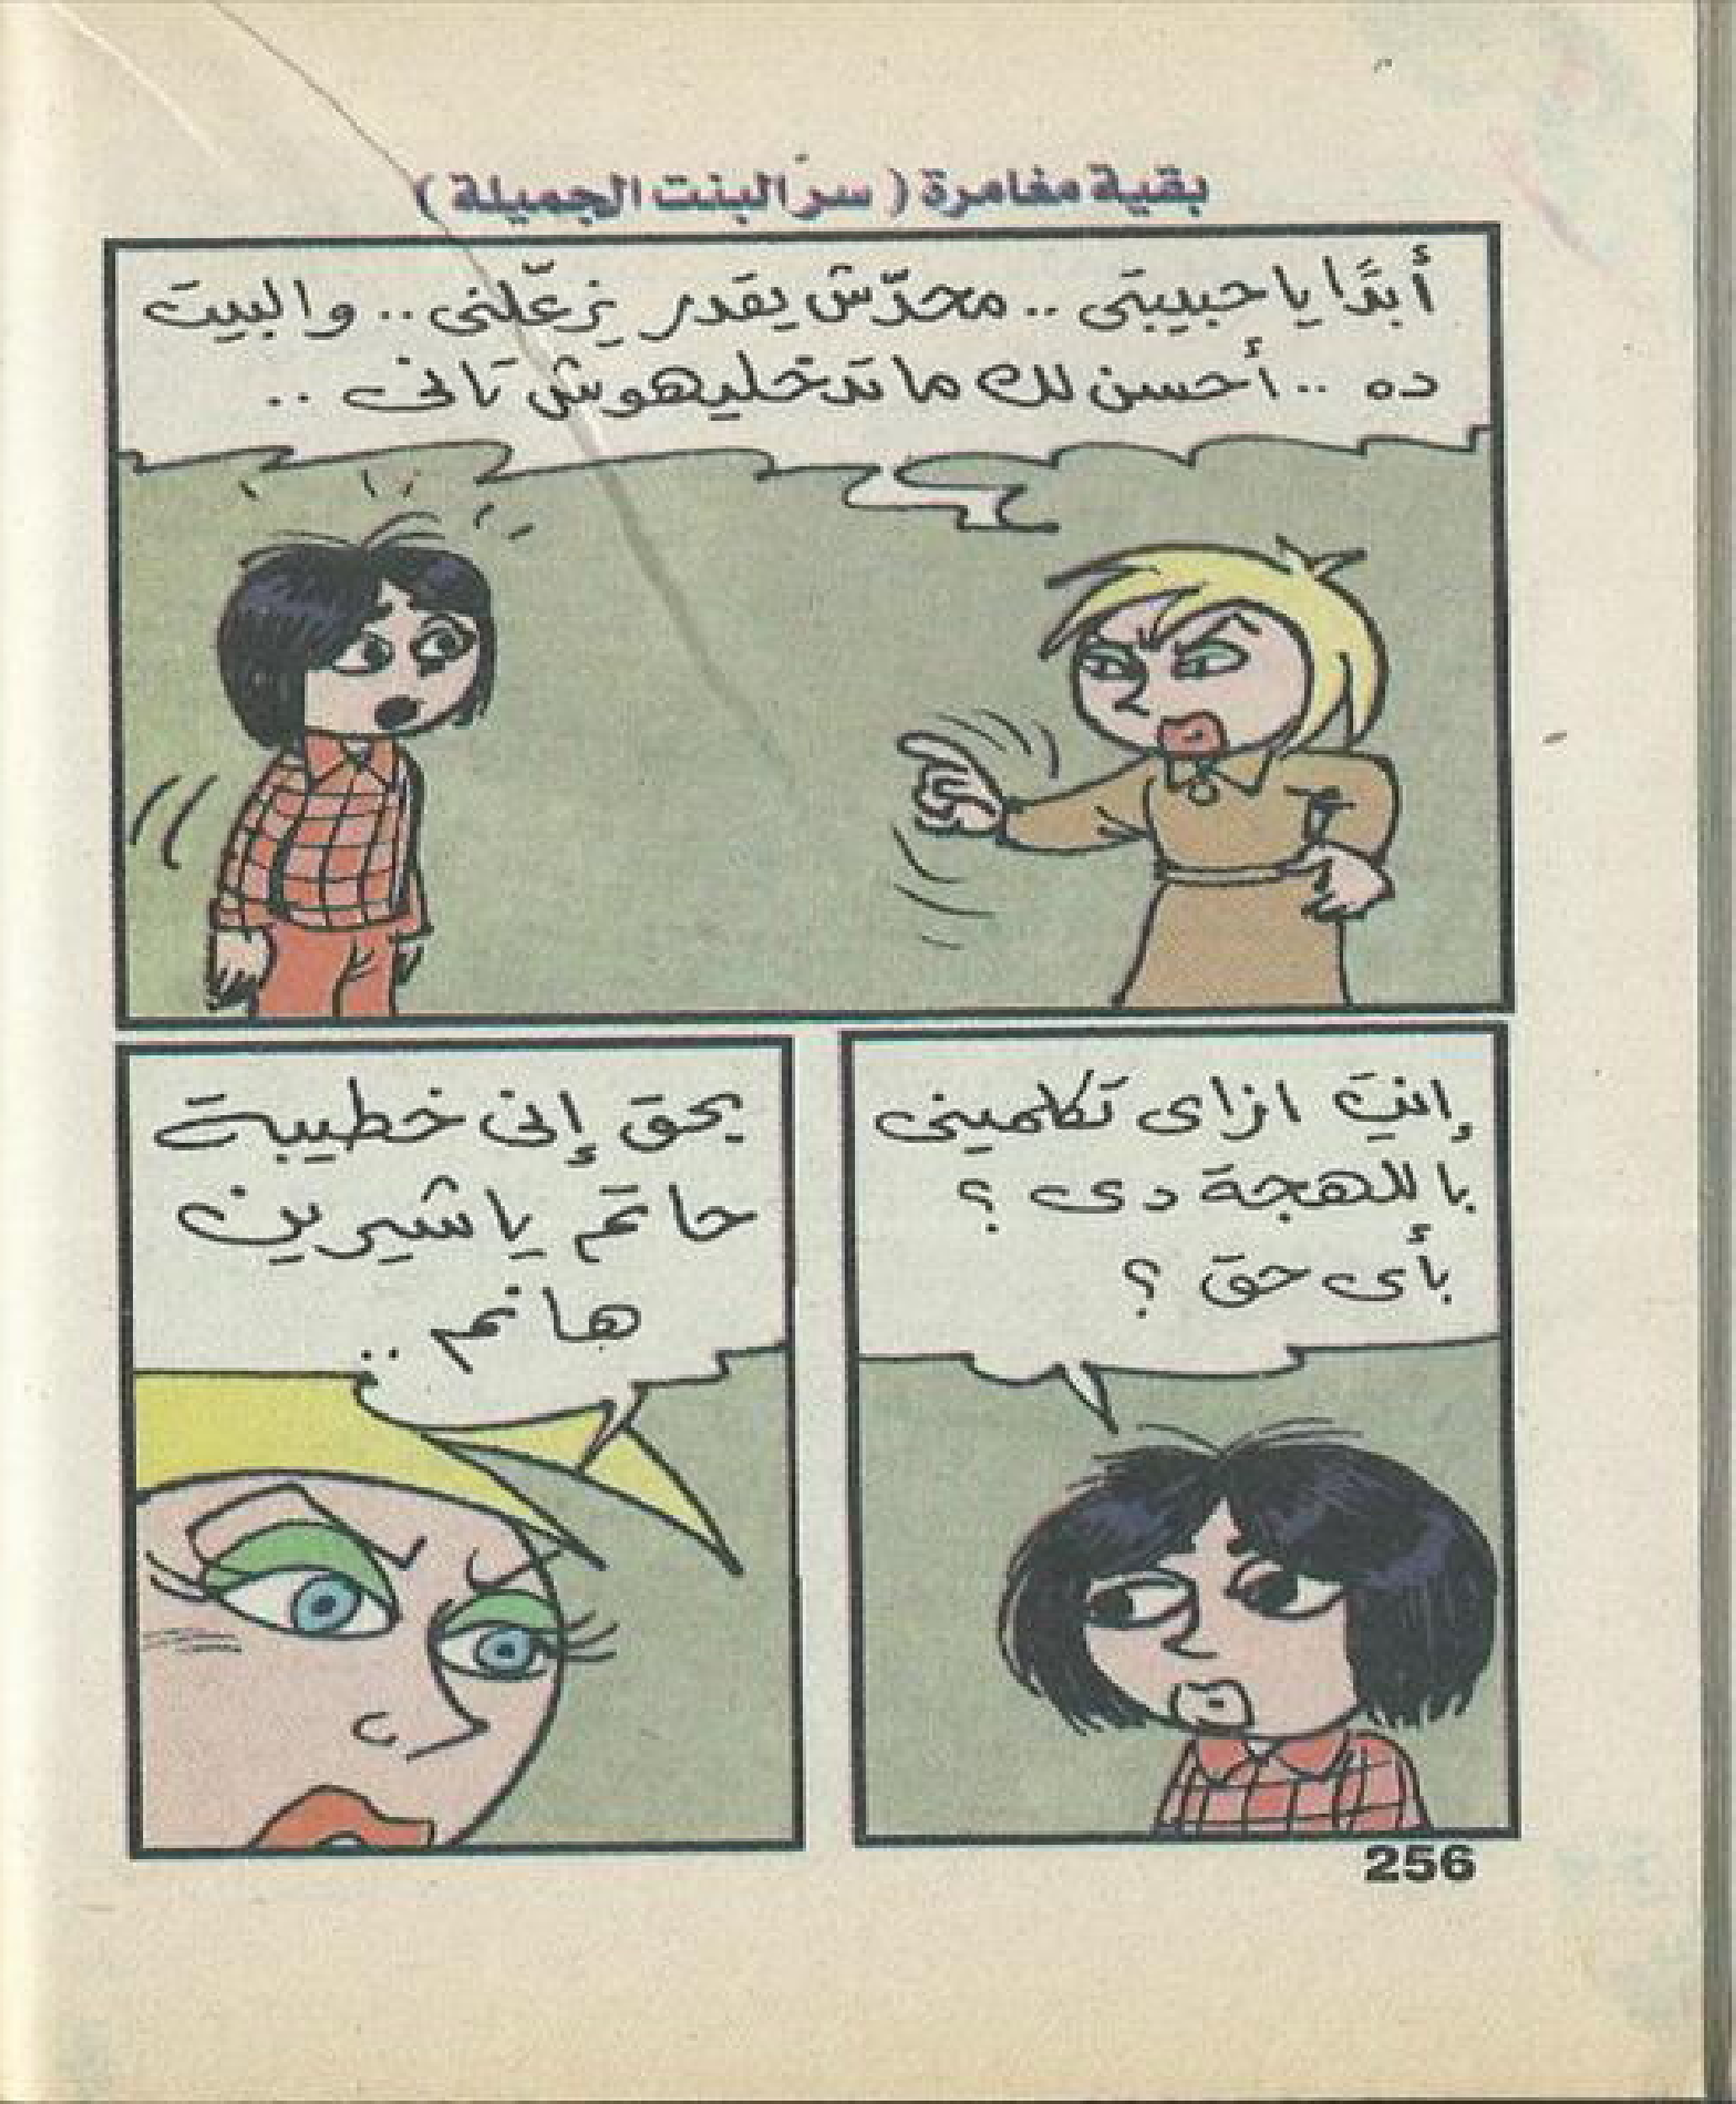 بقية مغامرة ( سرّ البنت الجميلة )
أبدًا يا حبيبتى .. محدّش يقدر يزعّلنى .. والبيت
ده .. أحسن لك ما تدخليهوش تانى ..
إنتِ ازاى تكلمينى
باللهجة دى ؟
بأى حق ؟
بحق إنى خطيبة
حاتم يا شيرين
هانم ..
256